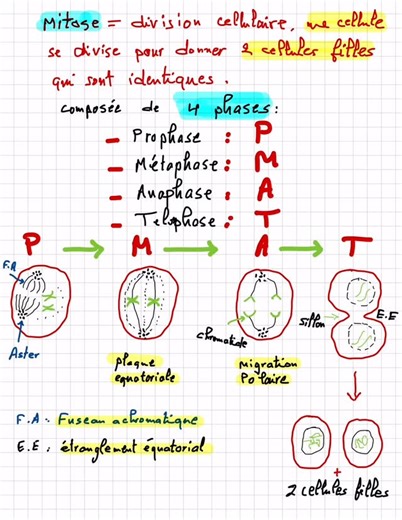 Mitose = division cellulaire, une cellule
se divise pour donner 2 cellules filles
qui sont identiques.
composée de 4 phases :
- Prophase : P
- Métaphase : M
- Anaphase : A
- Telophase : T
P → M → A → T
F.A
Aster
chromatide
sillon
E.E
plaque
equatoriale
migration
Polaire
F.A : Fuseau achromatique
E.E : étranglement équatorial
+
2 cellules filles